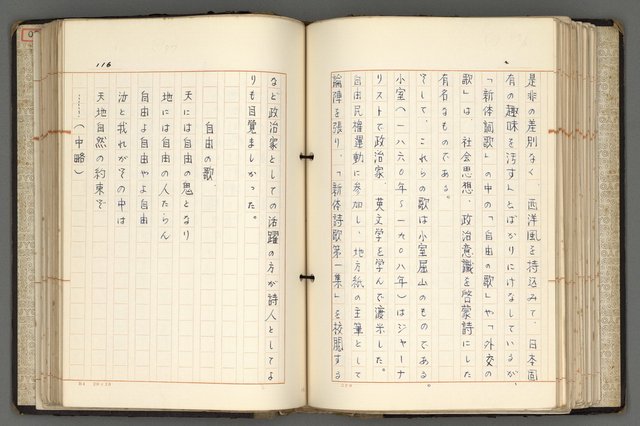 是非の差別なく、西洋風を持込みて、日本固
有の趣味を汚す」とばかりにけなしているが、
「新体詞歌」の中の「自由の歌」や「外交の
歌」は、社会思想、政治意識を啓蒙詩にした
有名なものである。
そして、これらの歌は小室屈山のものである。
小室(一八六〇年〜一九〇八年)はジャーナ
リストで政治家、英文学を学んで渡米した。
自由民権運動に参加し、地方紙の主筆として
論陣を張り、「新体詩歌第一集」を校閲する
116
など政治家としての活躍の方が詩人としてよ
りも目覚ましかった。
自由の歌
天には自由の鬼となり
地には自由の人たらん
自由よ自由やよ自由
汝と我れがその中は
天地自然の約束ぞ
……(中略)